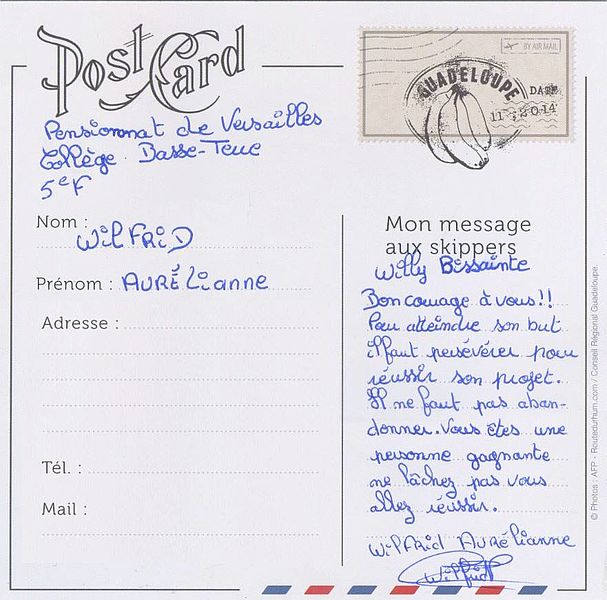 Post Card
BY AIR MAIL
GUADELOUPE
DATE
11 2014
Pensionnat de Versailles
Collège Basse-Terre
5e F
Nom : WilFRiD
Prénom : AURÉLianne
Adresse :
Tél. :
Mail :
Mon message
aux skippers
Willy Bissainte
Bon courage à vous!!
Pour atteindre son but
il faut persévérer pour
réussir son projet.
Il ne faut pas aban-
donner. Vous êtes une
personne gagnante
ne lâchez pas vous
allez réussir.
WilFRiD AURÉLianne
Wilfrid
© Photos : AFP - Routedurhum.com / Conseil Régional Guadeloupe.